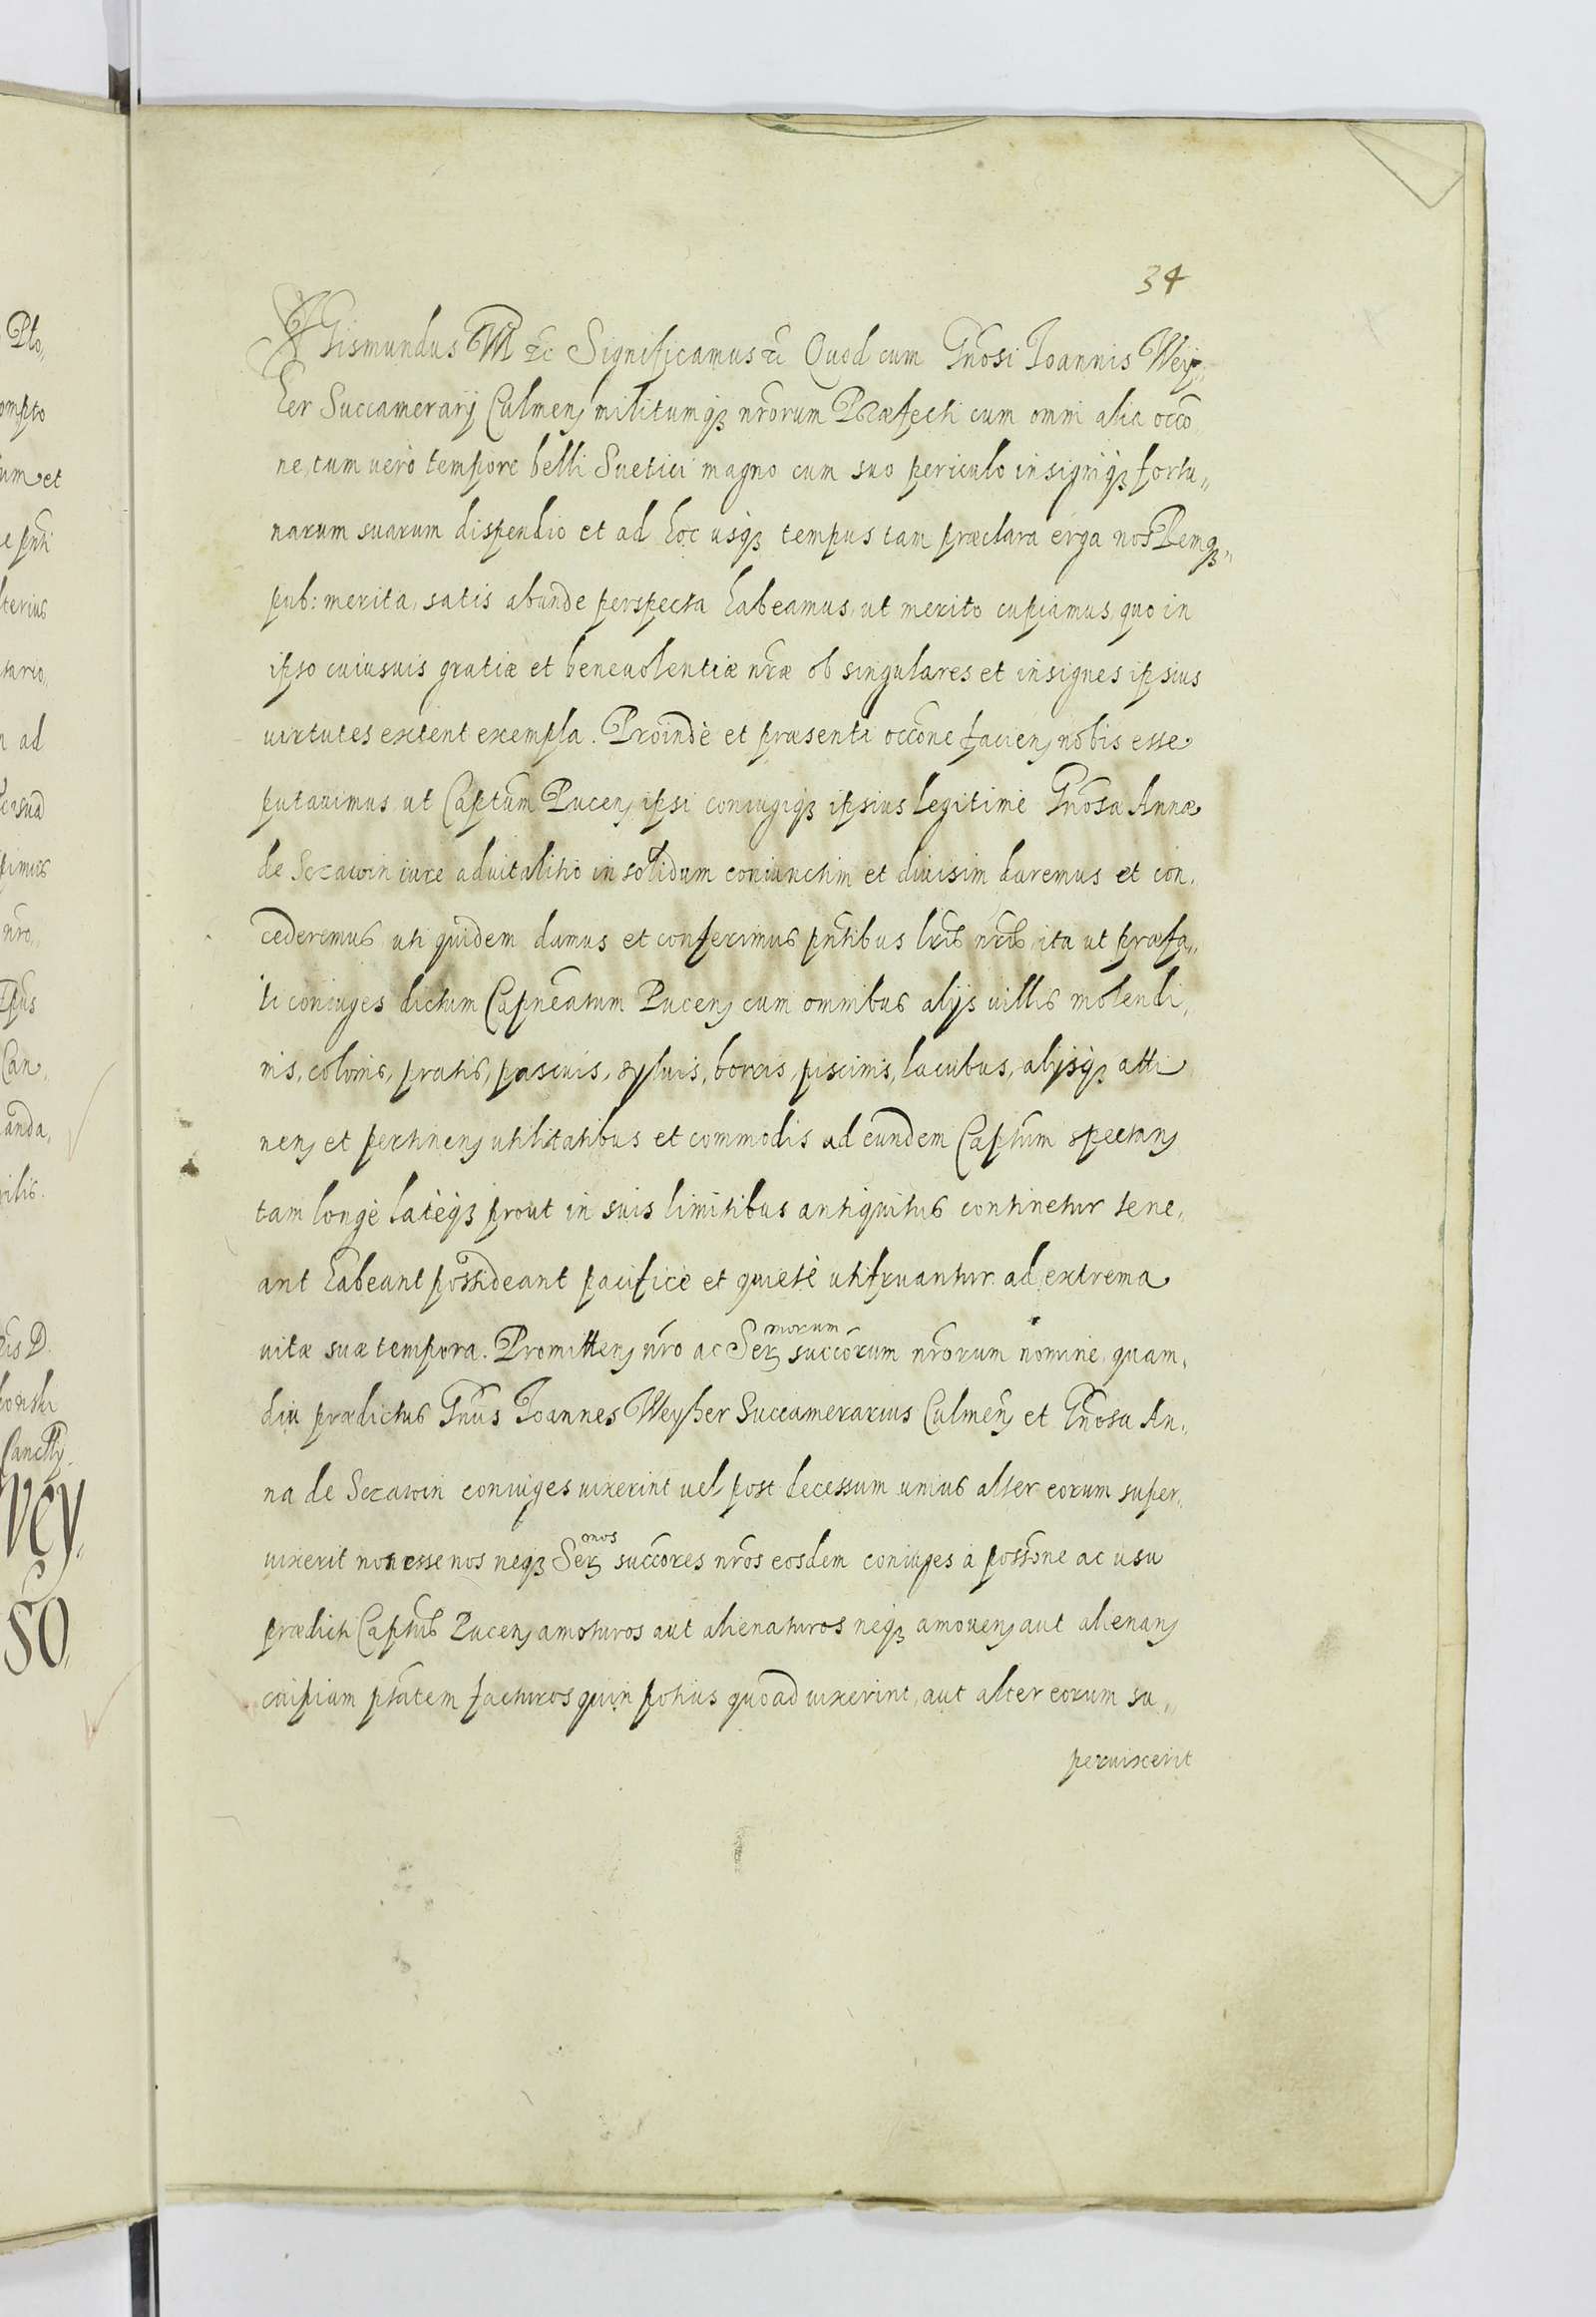 34
Sigismundus III etc Significamus etc Quod cum Gnosi Ioannis Wey„
her Succamerarij Culmen militumq nrorum Præfecti cum omni alia occo
ne, tum uerò tempore belli Suetici magno cum suo periculo insigniq fortu„
narum suarum dispendio et ad hoc usq tempus tam præclara erga nos Remq„
pub: merita, satis abunde perspecta habeamus, ut merito cupiamus, quo in
ipso cuiusuis gratiæ et beneuolentiæ nræ ob singulares et insignes ipsius
uirtutes extent exempla. Proindè et præsenti occone facien nobis esse
putauimus, ut Captum Pucen ipsi coniugiq ipsius legitimè Gnosa Annæ
de Sczawin iure aduitalitio in solidum coniunctim et diuisim daremus et con„
cederemus uti quidem damus et conferimus pntibus lris nris, ita ut præfa„
ti coniuges dictum Capneatum Pucen cum omnibus alijs uillis molendi„
nis, colonis, pratis, pascuis, syluis, borris, piscinis, lacubus, alijsq atti
nen et pertinen utilitatibus et commodis ad eundem Captum spectan
tam longè latèq prout in suis limitibus antiquitus continetur tene„
ant habeant possideant pacificè et quietè utifruantur ad extrema
uitæ suæ tempora. Promitten nro ac Ser morum succorum nrorum nomine, quam„
diu prædictus Gnus Ioannes Weyher Succamerarius Culmen et Gnosa An„
na de Sczawin coniuges uixerint uel post decessum unius alter eorum super„
uixerit non esse nos neq Ser mos succores nros eosdem coniuges à possone ac usu
prædicti Captus Pucen amoturos aut alienaturos neq amouen aut alienan
cuipiam ptatem facturos quin potius quoad uixerint, aut alter eorum su„
peruixerit
Pto„
ompto
um et
e pnti
lterius
ad
nro„
Can„
anda„
ilis.
Cancell
Wey„
so„